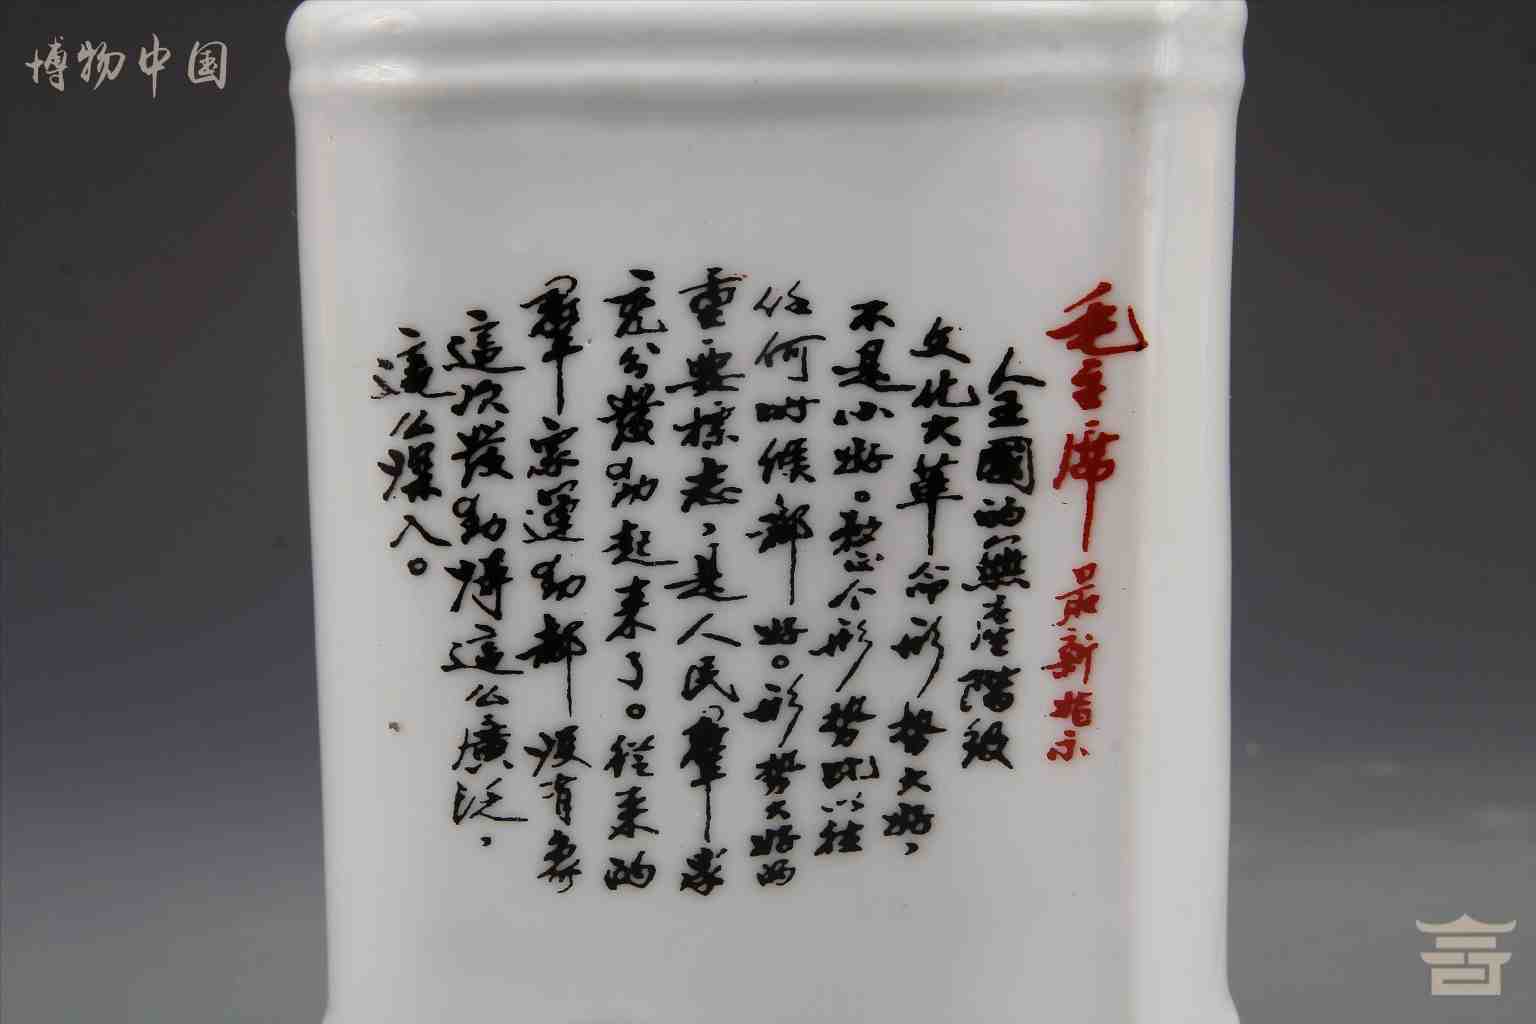 博物中国
毛主席最新指示
全國的無產階級
文化大革命形勢大好，
不是小好。整个形勢比以往
任何时候都好。形勢大好的
重要標志，是人民羣衆
充分發动起来了。從来的
羣衆運动都没有象
這次發动得這么廣泛，
這么深入。